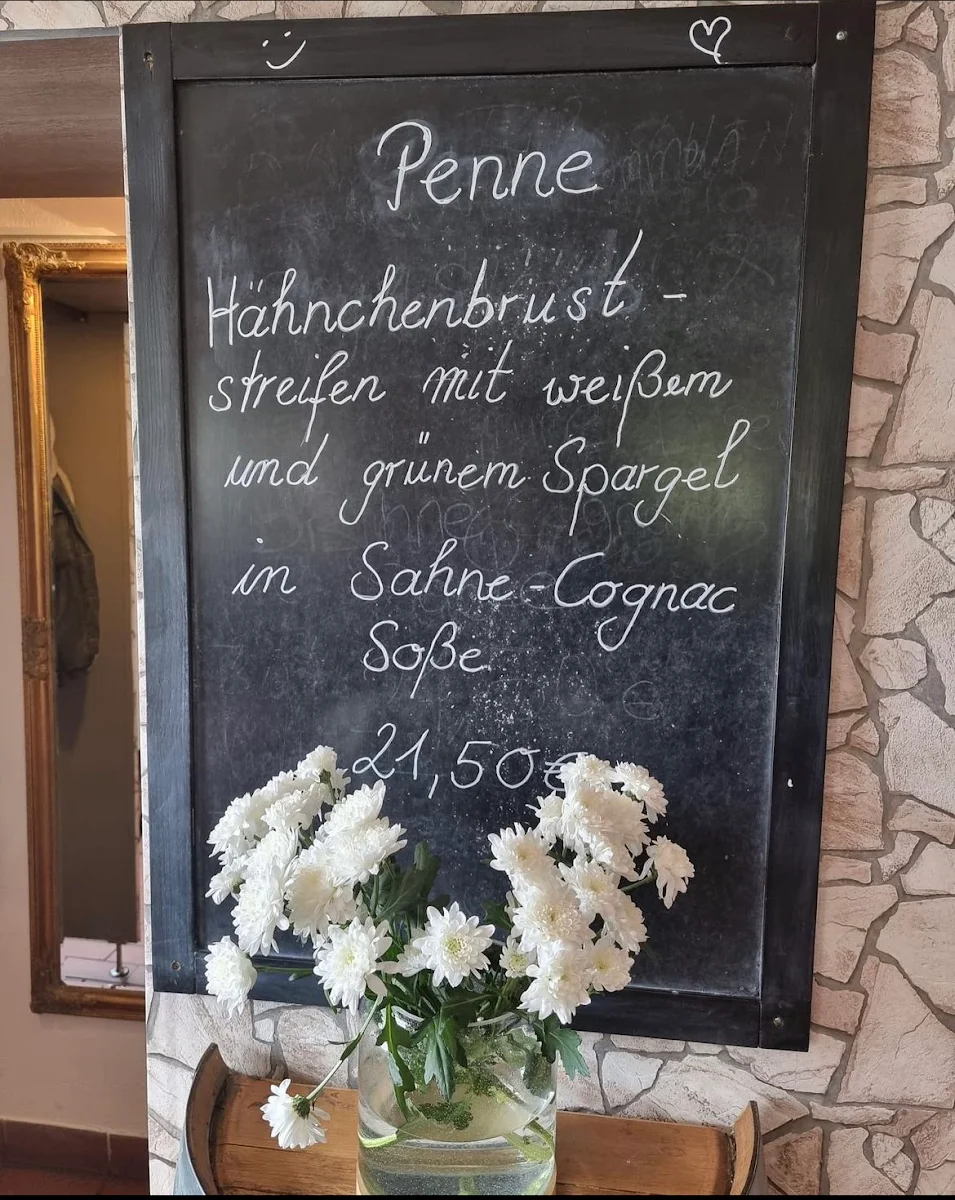 Penne
Hähnchenbrust -
streifen mit weißem
und grünem Spargel
in Sahne-Cognac
Soße
21,50€